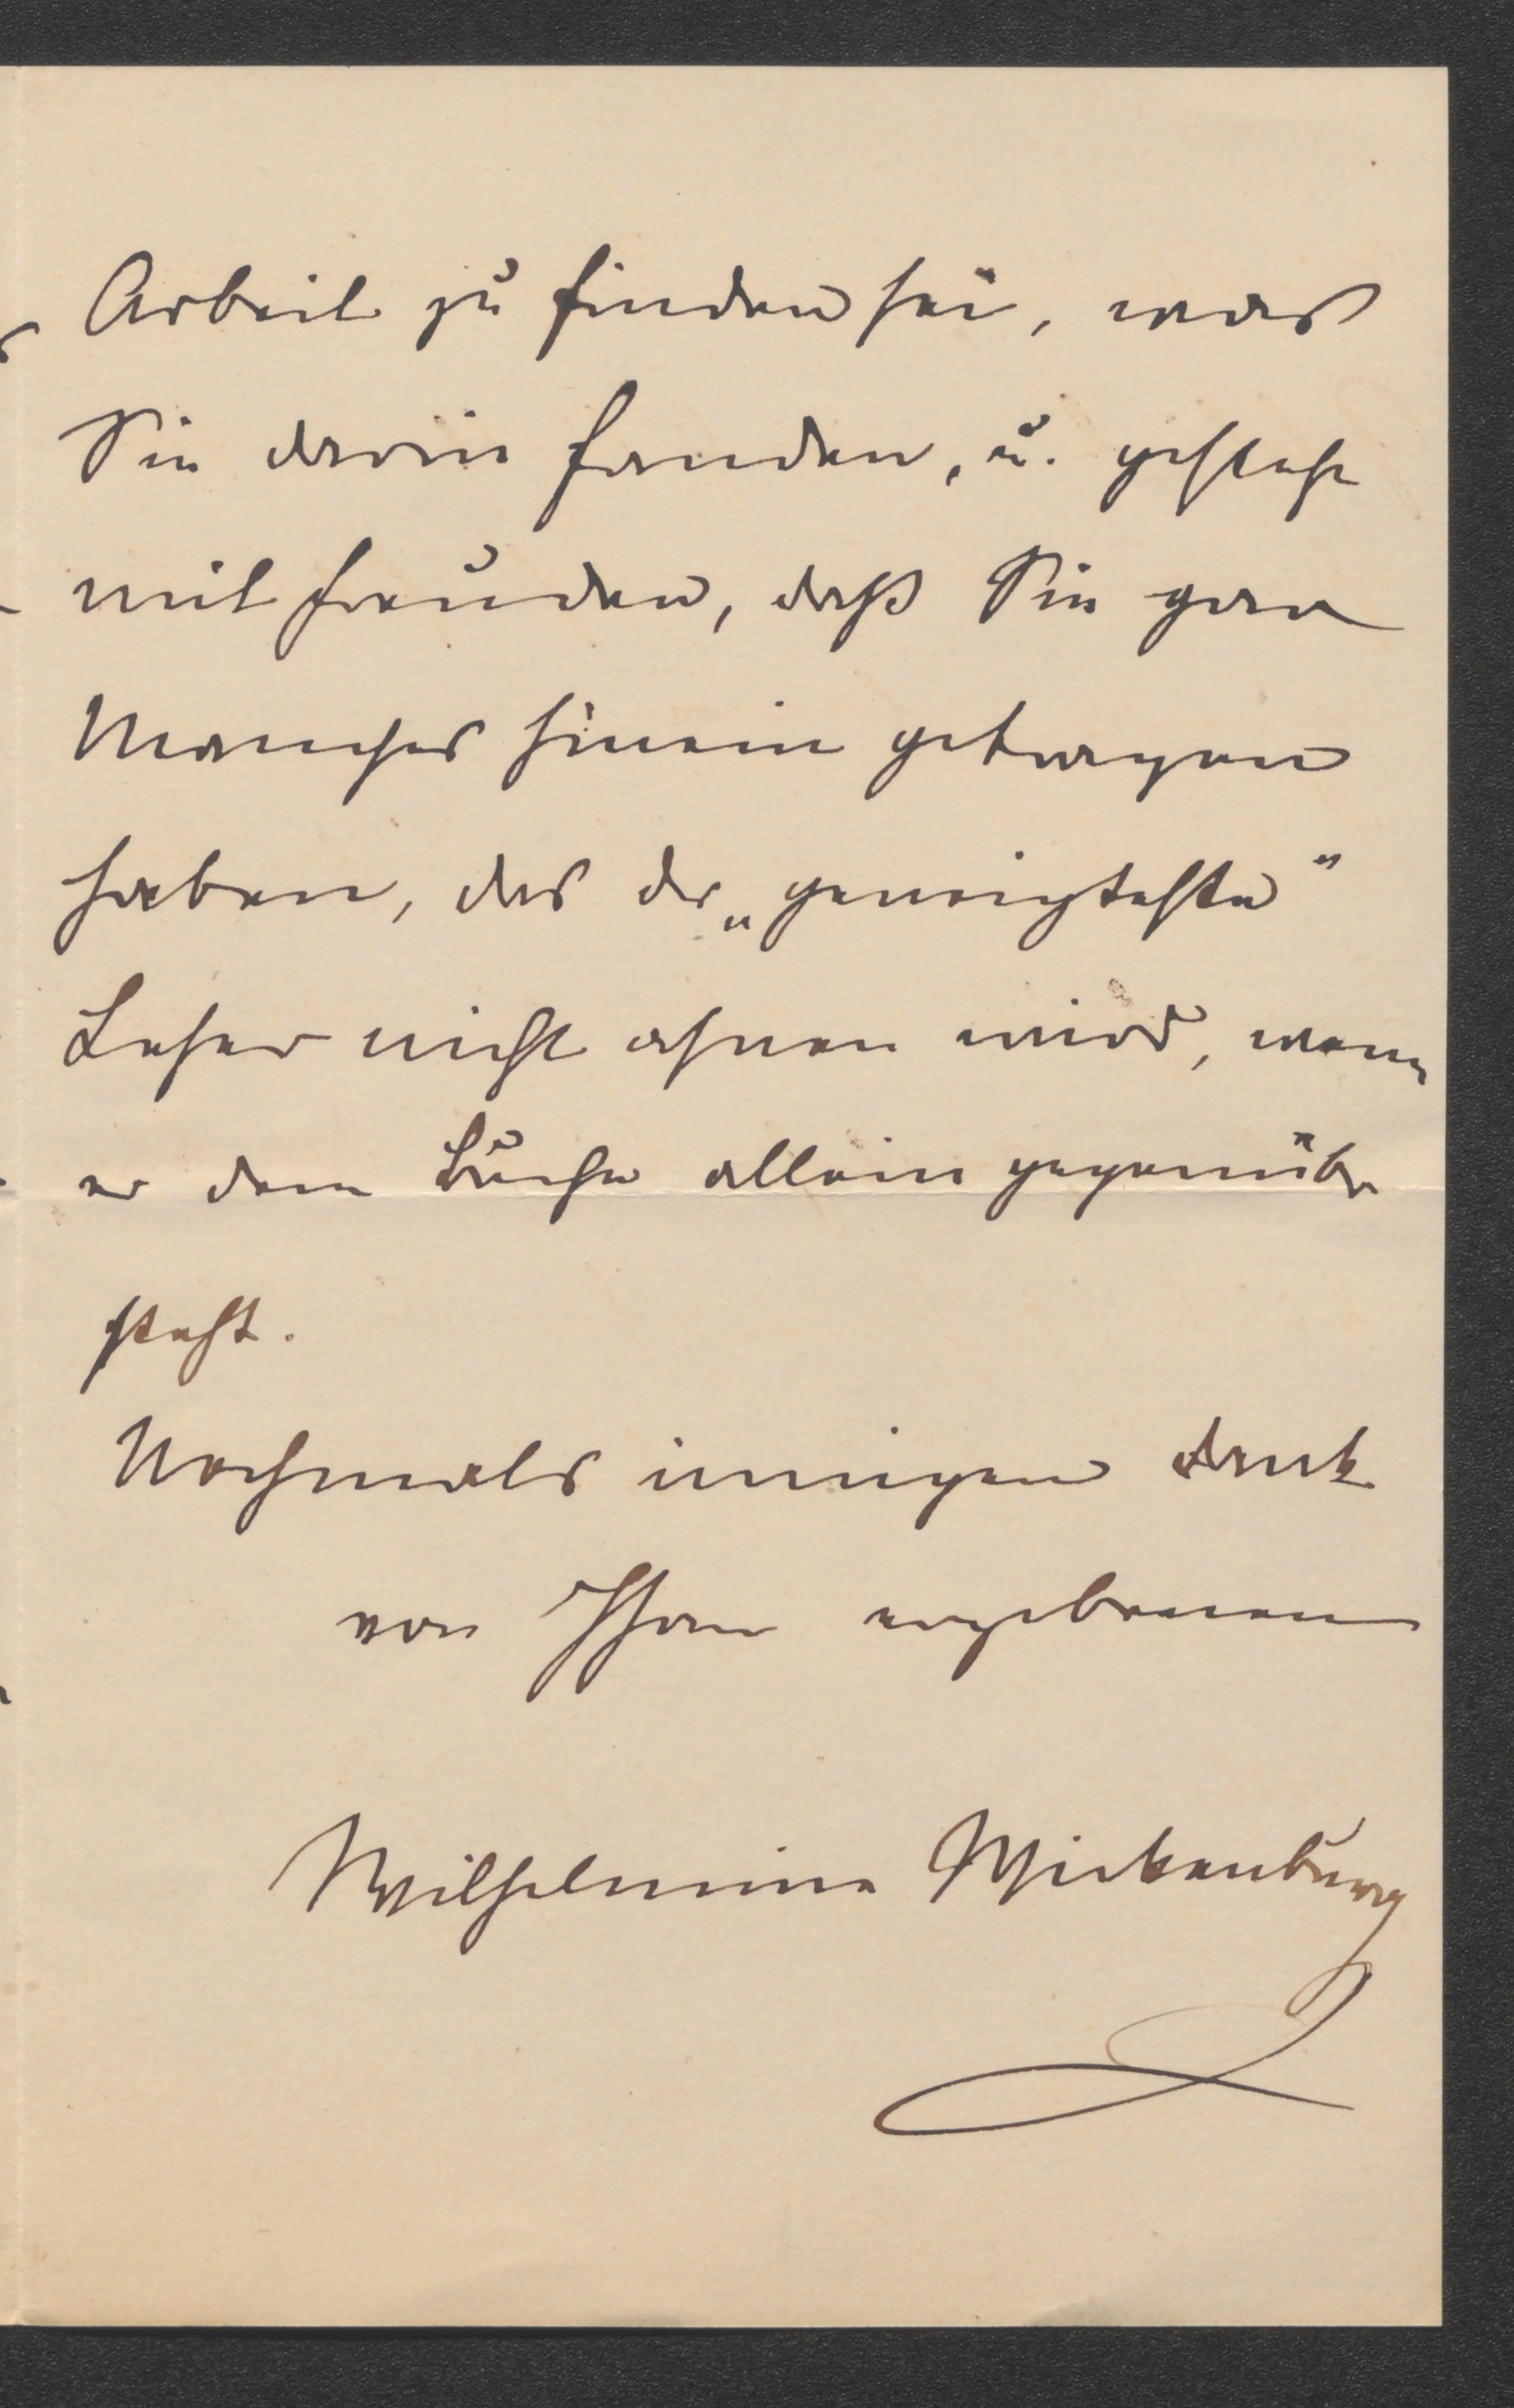 Arbeit zu finden sei, was
Sie darin fanden, u. gestehe
mit Freuden, daß Sie gar
Manches hinein getragen
haben, das der „geneigteste“
Leser nicht ahnen wird, wenn
er dem Buche allein gegenüber
steht.
Nochmals innigen Dank
von Ihrer ergebenen
Wilhelmine Wickenburg